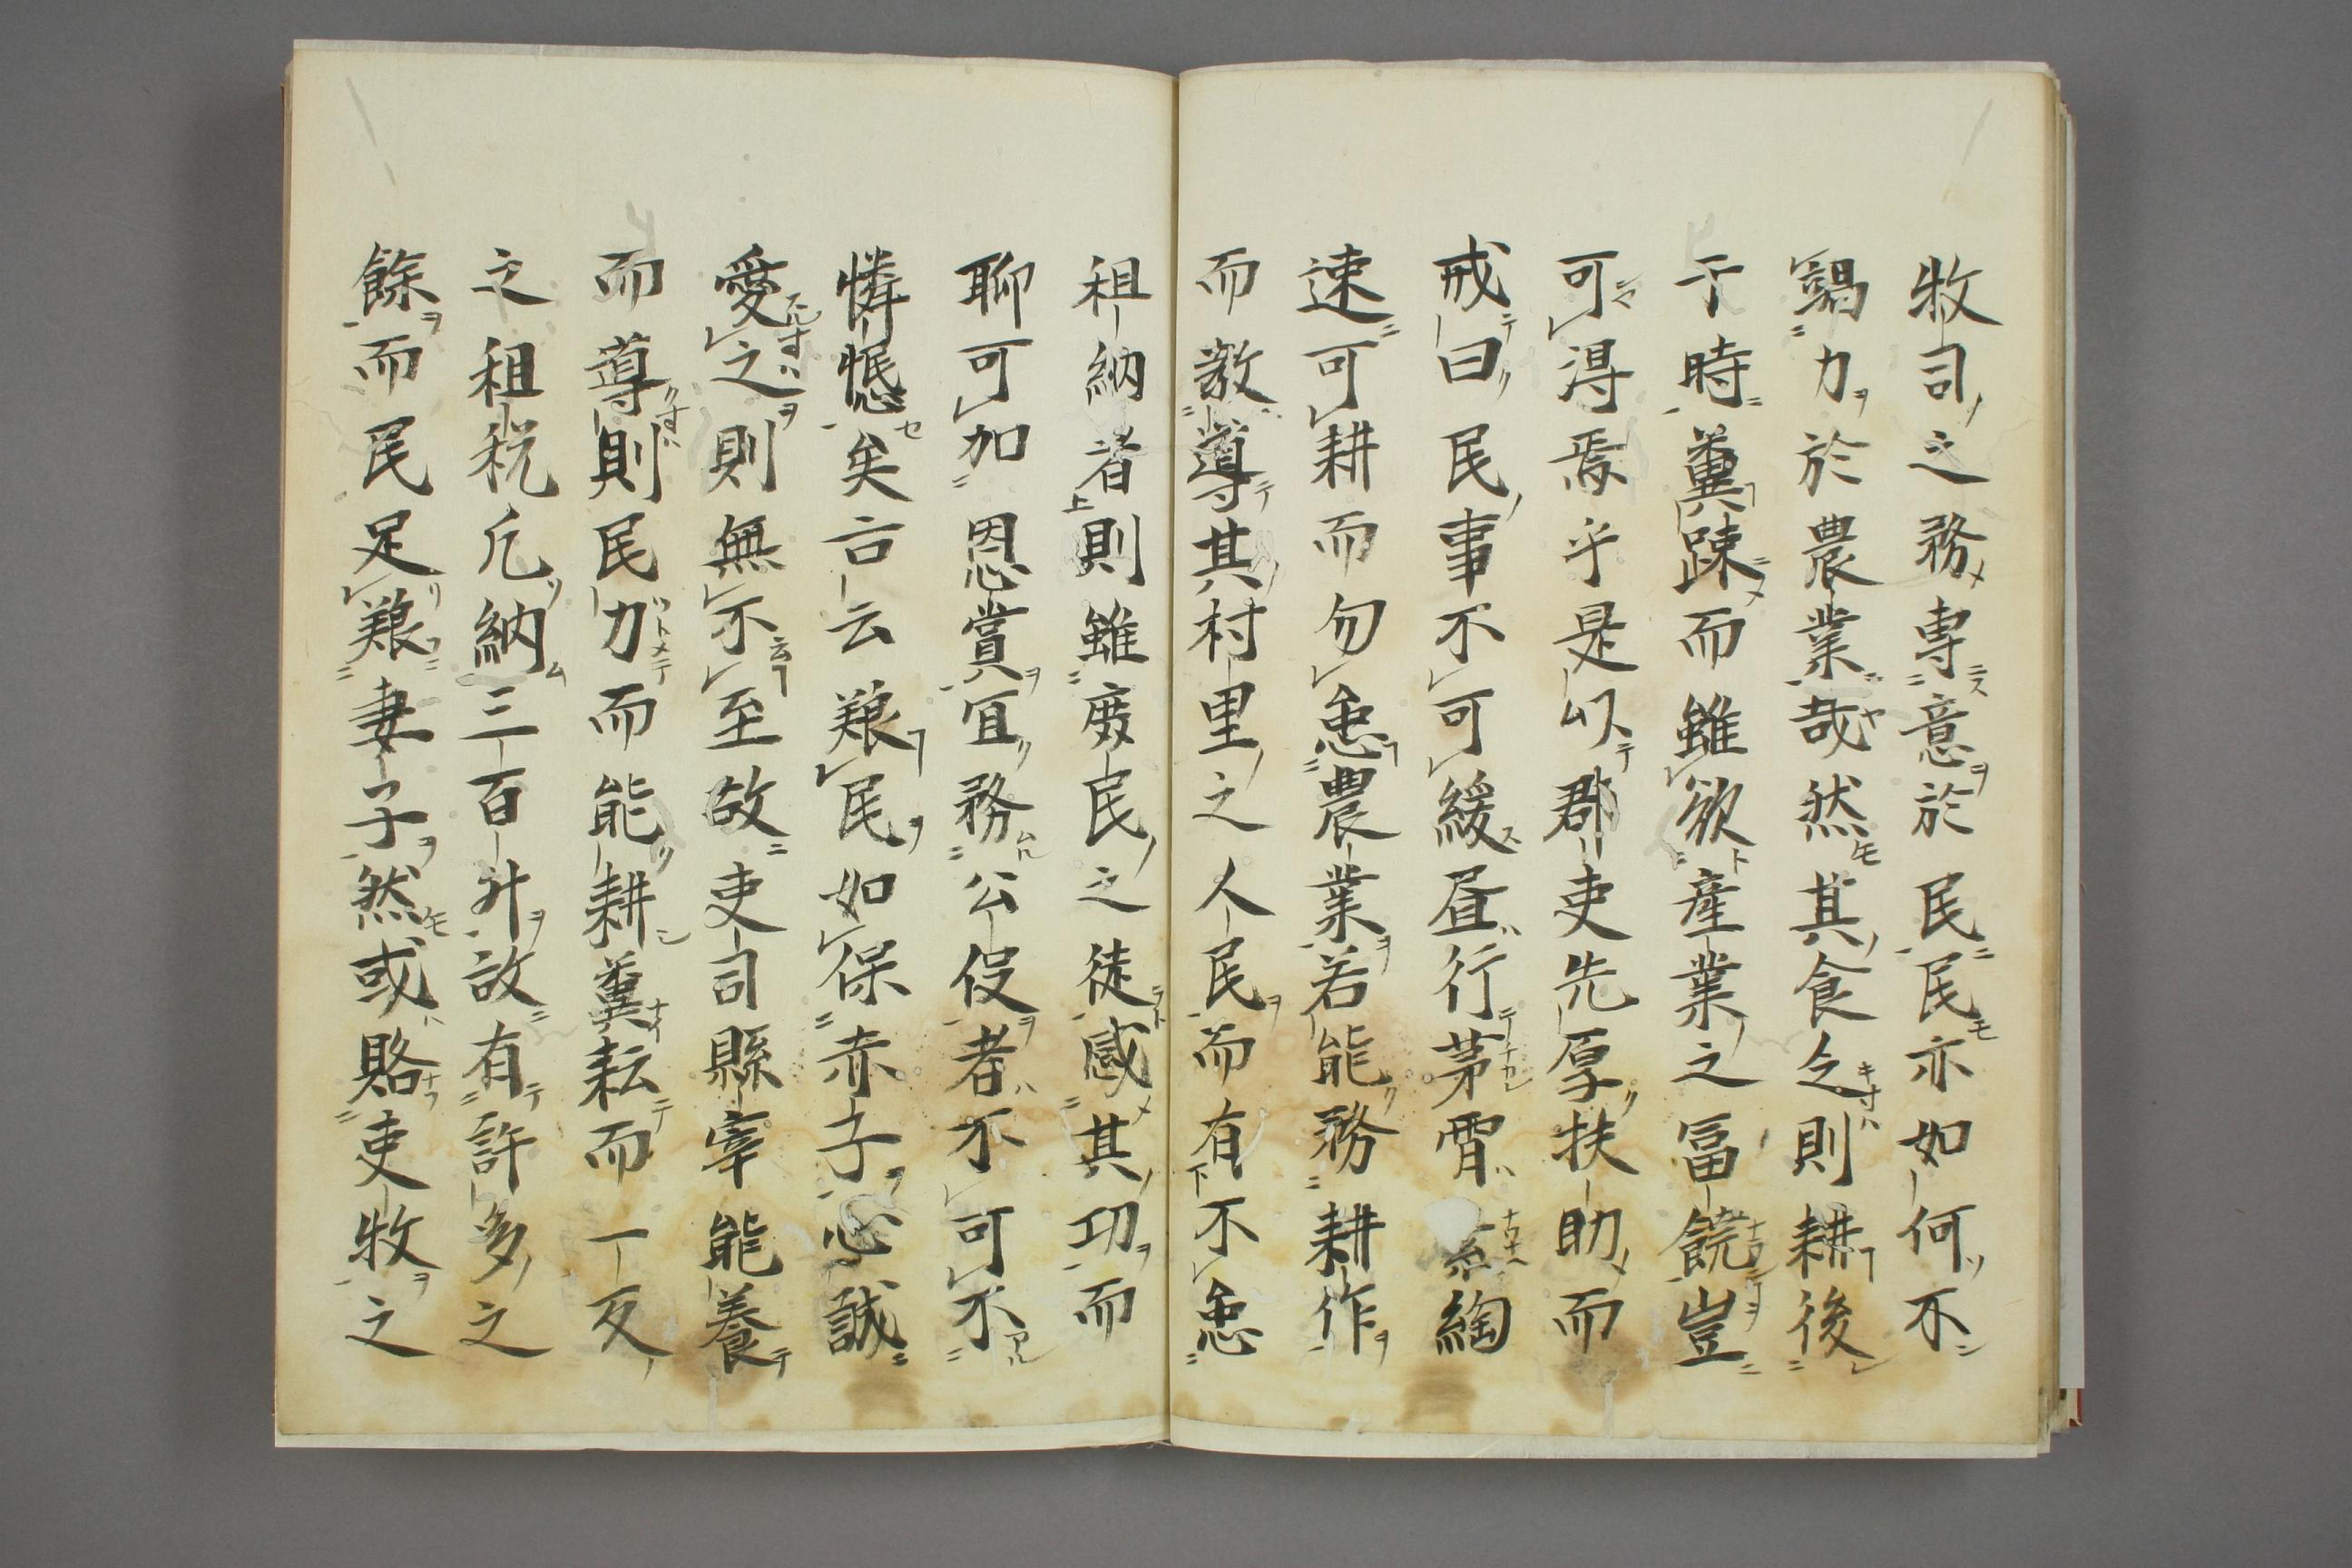 牧司之務専意於民民亦如何不
竭力於農業哉然其食乏則耕後
于時糞踈而雖欲産業之冨饒豈
可得焉乎是以郡吏先厚扶助而
戒曰民事不可緩昼行茅霄綯
速可耕而勿怠農業若能務耕作
而教導其村里之人民而有不怠
租納者則雖廃民之徒感其功而
聊可加恩賞冝務公役者不可不
憐愍矣古云艱民如保赤子心誠
愛之則無不至故吏司縣宰能養
而導則民力而能耕糞耘而一反
之租税凡納三百升故有許多之
餘而民足艱妻子然或賂吏牧之